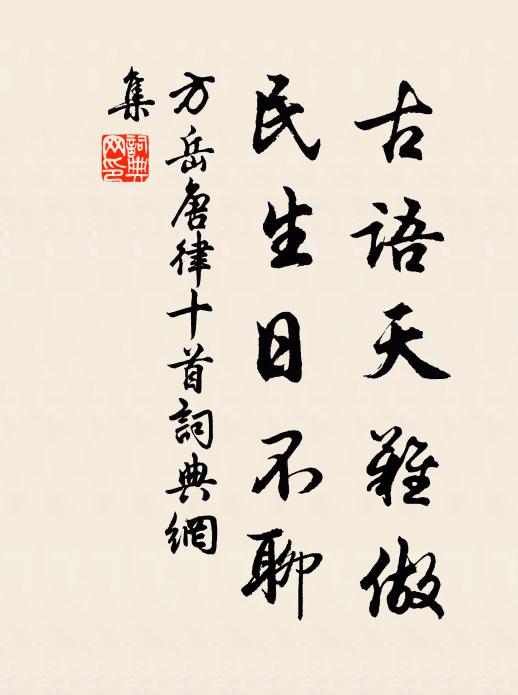 古语天難做
民生日不聊
方岳唐律十首詞典網
集
詞典網印